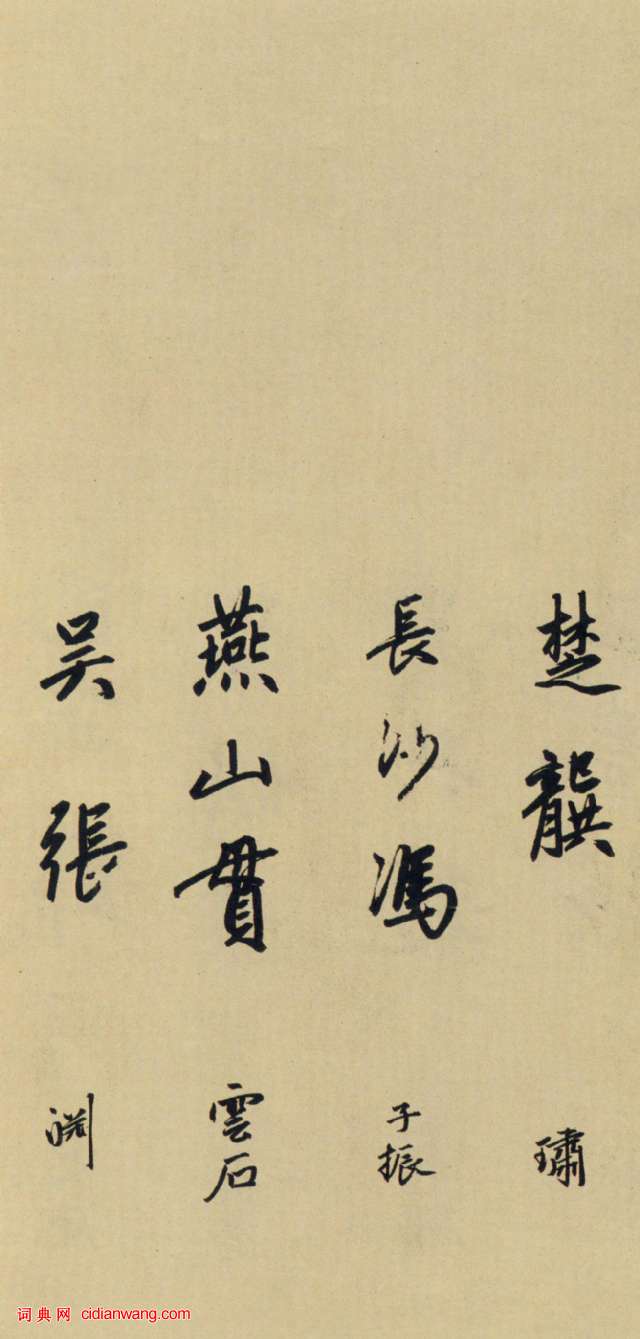 楚龔 璛
長沙馮 子振
燕山貫 雲石
吴張 渕
词典网 cidianwang.com